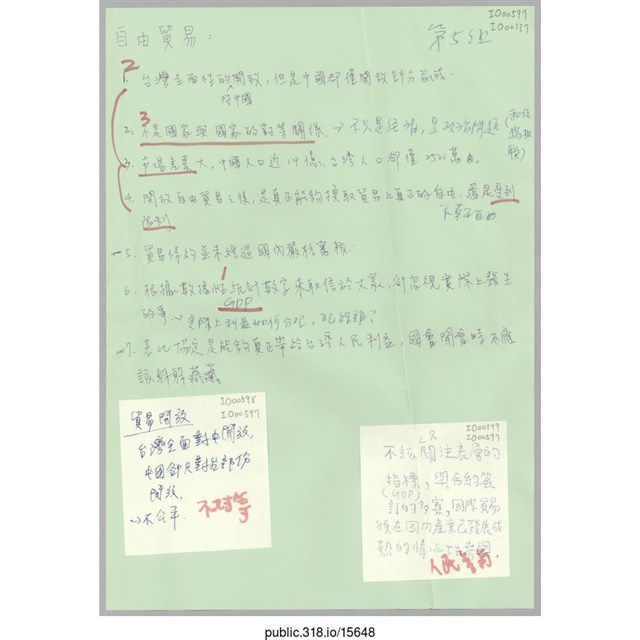 IO00597
IO00137
自由貿易：
第5組
2
1. 台灣全面性的開放，但是中國卻僅開放部分省城.
對中國
3
2. 不是國家與國家的對等關係 → 不只是經濟，是政治問題
3. 市場差異大，中國人口近14億，台灣人口卻僅2300萬
4. 開放自由貿易之後，是真正能夠換取貿易上真正的自由，還是受到
限制
5. 貿易條約並未經過國內嚴格審核.
1
6. 根據數據性統計數字來取信於大眾，卻忽視實際上發生
GDP
的事. → 實際上利益如何分配，配給誰？
7. 若此協定是能夠真正帶給台灣人民利益，國會開會時不應
該躲躲藏藏.
IO00598
IO00597
貿易開放
台灣全面對中開放,
中國卻只對台部份
開放.
→ 不公平. 不对等
IO00597
不該只關注表層的
指標，與合約簽
(GDP)
訂的多寡，國際貿易
須在國內產業已發展成
熟的情況
public.318.io/15648